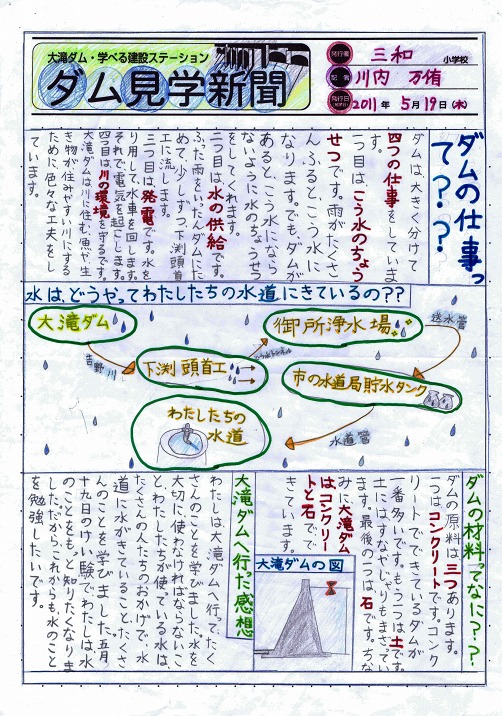 大滝ダム・学べる建設ステーション
ダム見学新聞
発行者 三和 小学校
記者 川内 万侑
発行日 2011年 5月19日(木)
ダムの仕事っ
て??
ダムは、大きく分けて
四つの仕事をしていま
す。
一つ目は、こう水のちょう
せつです。雨がたくさ
んふると、こう水に
なります。でもダムが
あると、こう水になら
ないように水のちょうせつ
をしてくれます。
二つ目は、水の供給です。
ふった雨をいったんダムにた
めて、少しずつ下渕頭首
工に流します。
三つ目は、発電です。水を
り用して、水車を回します。
それで電気を起こします。
四つ目は、川の環境を守るです。
大滝ダムは、川に住む、魚や、生
き物が住みやすい川にする
ために、色々な工夫をし
ています。
水は、どうやってわたしたちの水道にきているの??
大滝ダム
吉野川
下渕頭首工
御所浄水場
送水管
市の水道局貯水タンク
水道管
わたしたちの
水道
ダムの材料ってなに??
ダムの原料は、三つあります。
一つは、コンクリートです。コンク
リートでできているダムが
一番多いです。もう一つは、土です。
土には、すなや、じゃりもまざってい
ます。最後の一つは、石です。ちな
みに、大滝ダム
は、コンクリー
トと石でで
きています。
大滝ダムの図
大滝ダムへ行った感想
わたしは、大滝ダムへ行って、たく
さんのことを学びました。水を
大切に使わなければならないこ
と、わたしたちが使っている水は、
たくさんの人たちのおかげで、水
道に水がきていること、たくさ
んのことを学びました。五月
十九日のけい験で、わたしは、水
のことをもっと知りたくなりま
した。だからこれからも、水のこと
を勉強したいです。